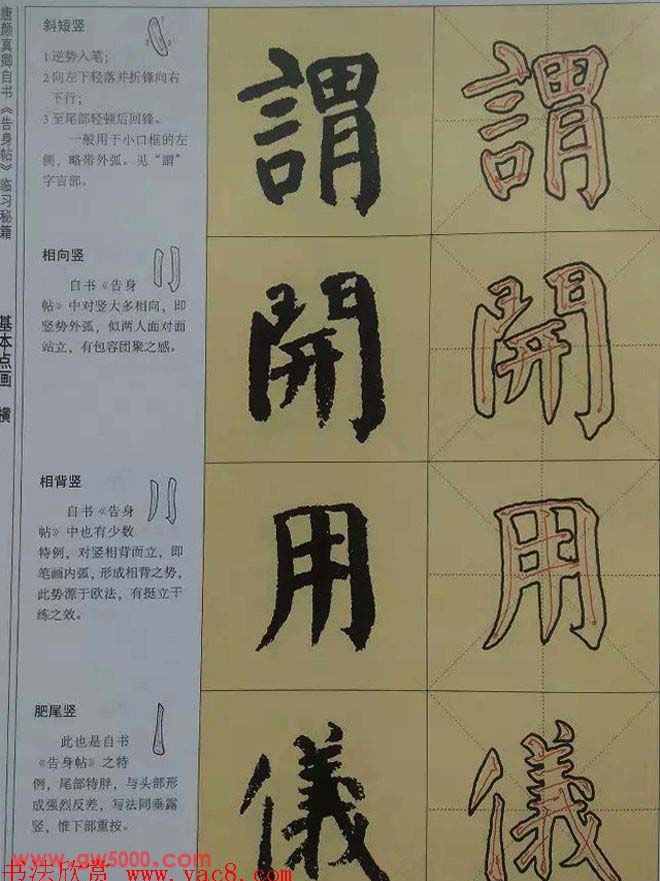 唐颜真卿自书《告身帖》临习秘籍
基本点画 横
斜短竖
1 逆势入笔；
2 向左下轻落并折锋向右
下行；
3 至尾部轻顿后回锋。
一般用于小口框的左
侧，略带外弧。见“謂”
字言部。
謂
相向竖
自书《告身
帖》中对竖大多相向，即
竖势外弧，似两人面对面
站立，有包容团聚之感。
開
相背竖
自书《告身
帖》中也有少数
特例，对竖相背而立，即
笔画内弧，形成相背之势，
此势源于欧法，有挺立干
练之效。
用
肥尾竖
此也是自书
《告身帖》之特
例，尾部特胖，与头部形
成强烈反差，写法同垂露
竖，惟下部重按。
儀
謂
開
用
儀
www.gw5000.com
书法欣赏 www.yac8.com